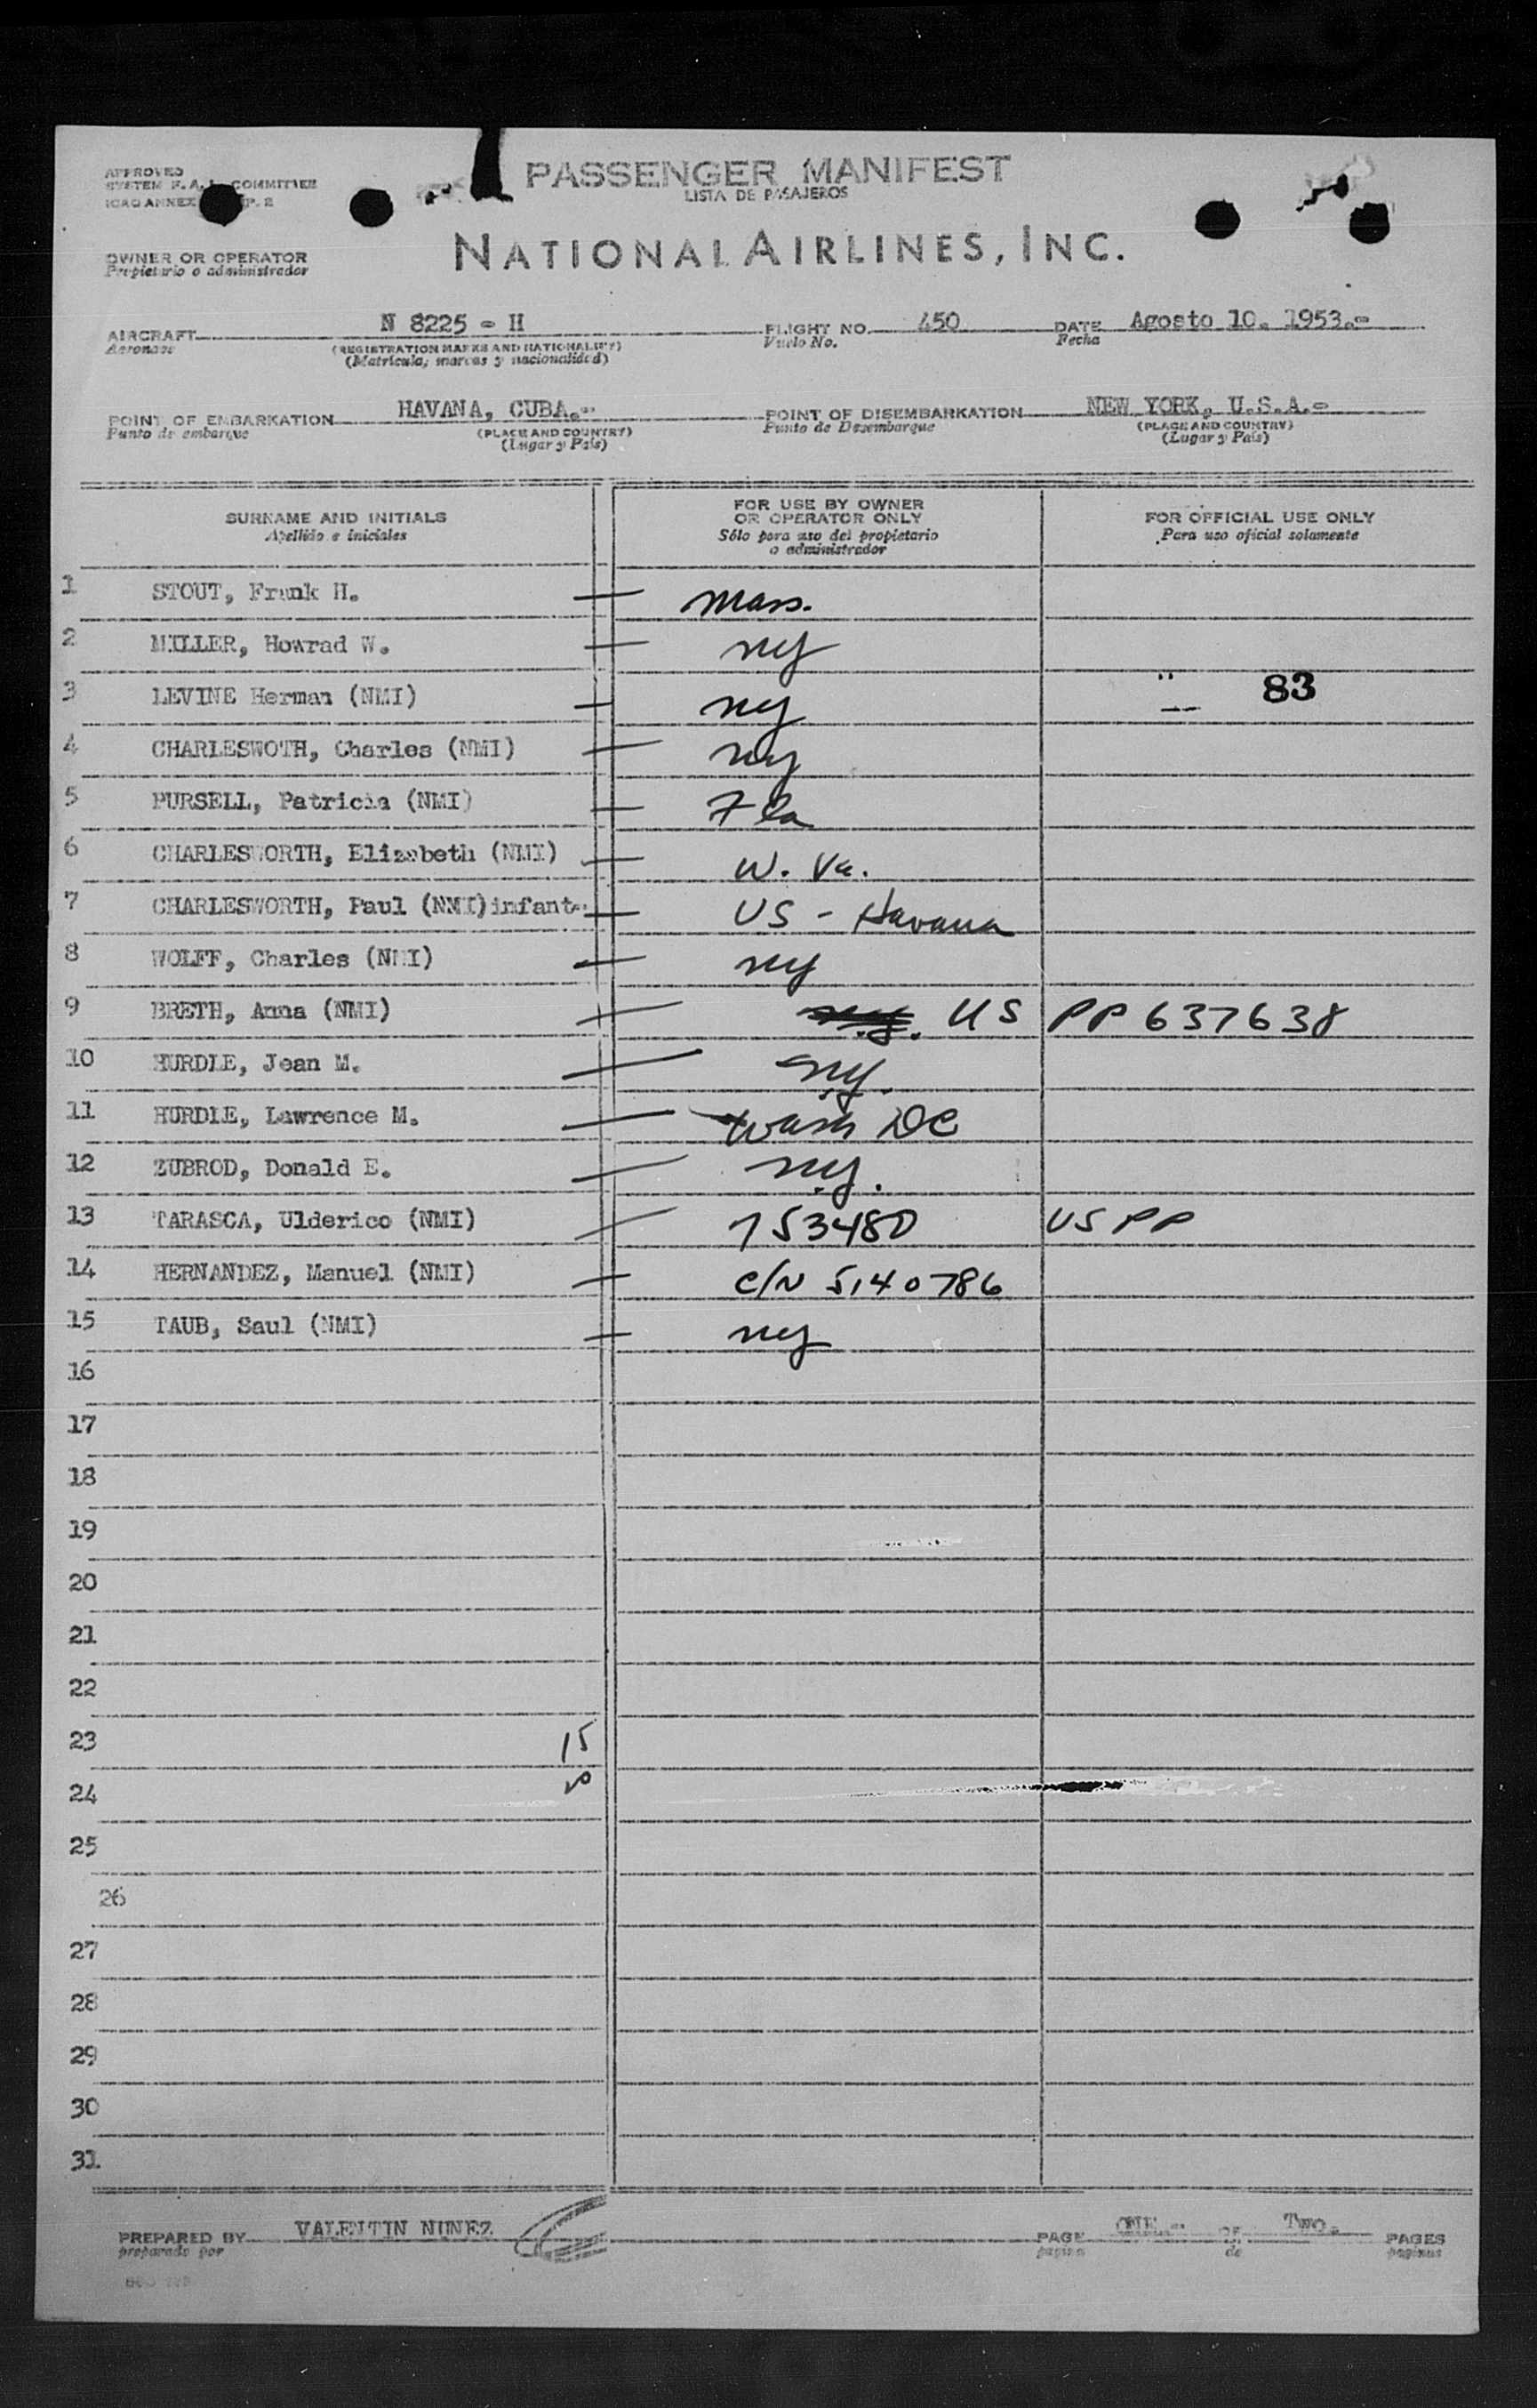 APPROVED
SYSTEM F. A. L. COMMITTEE
ICAO ANNEX P. 2
PASSENGER MANIFEST
LISTA DE PASAJEROS
NATIONAL AIRLINES, INC.
OWNER OR OPERATOR
Propietario o administrador
AIRCRAFT N 8225 - H FLIGHT NO. 450 DATE Agosto 10. 1953.-
Aeronave (REGISTRATION MARKS AND NATIONALITY) Vuelo No. Fecha
(Matrícula, marcas y nacionalidad)
POINT OF EMBARKATION HAVANA, CUBA.- POINT OF DISEMBARKATION NEW YORK, U.S.A.-
Punto de embarque (PLACE AND COUNTRY) Punto de Desembarque (PLACE AND COUNTRY)
(Lugar y País) (Lugar y País)
SURNAME AND INITIALS
Apellido e iniciales
FOR USE BY OWNER
OR OPERATOR ONLY
Sólo para uso del propietario
o administrador
FOR OFFICIAL USE ONLY
Para uso oficial solamente
1 STOUT, Frank H. — Mass.
2 MILLER, Howrad W. — ny
3 LEVINE Herman (NMI) — ny 83
4 CHARLESWOTH, Charles (NMI) — ny
5 PURSELL, Patricia (NMI) — Fla
6 CHARLESWORTH, Elizabeth (NMI) — W. Va.
7 CHARLESWORTH, Paul (NMI) infant. — US - Havana
8 WOLFF, Charles (NMI) — ny
9 BRETH, Anna (NMI) — n.y. US PP 637638
10 HURDLE, Jean M. — n.y.
11 HURDLE, Lawrence M. — Wash DC
12 ZUBROD, Donald E. — n.y.
13 TARASCA, Ulderico (NMI) — 753480 US PP
14 HERNANDEZ, Manuel (NMI) — C/N 5140786
15 TAUB, Saul (NMI) — ny
16
17
18
19
20
21
22
23 15
24
25
26
27
28
29
30
31
PREPARED BY VALENTIN NUNEZ PAGE ONE.- OF Two. PAGES
preparado por pagina de paginas